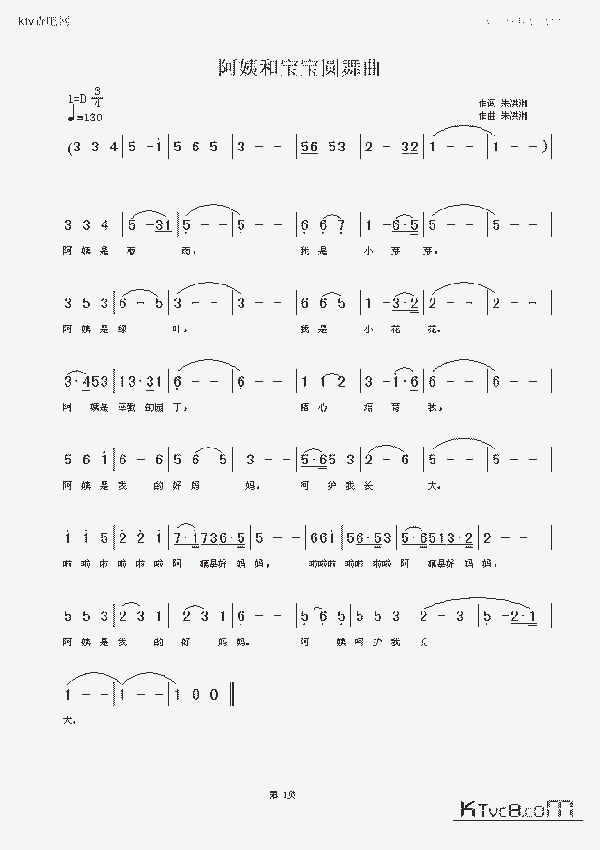 阿姨和宝宝圆舞曲
1=D 3/4
♩=130
作词 朱洪湘
作曲 朱洪湘
(3 3 4 | 5 - 1̇ | 5 6 5 | 3 - - | 56 53 | 2 - 32 | 1 - - | 1 - - )
3 3 4 | 5 - 31 | 5̣ - - | 5̣ - - | 6̣ 6̣ 7̣ | 1 - 6̣·5̣ | 5 - - | 5 - -
阿 姨 是 雨, 我 是 小 芽 芽。
3 5 3 | 6 - 5 | 3 - - | 3 - - | 6 6 5 | 1 - 3·2 | 2 - - | 2 - -
阿 姨 是 绿 叶, 我 是 小 花 花。
3·453 | 13·31 | 6̣ - - | 6̣ - - | 1 1 2 | 3 - 1·6̣ | 6 - - | 6 - -
阿 姨是 辛勤 园 丁, 心 培 育 我。
5 6 1̇ | 6 - 6 | 5 6 5 | 3 - - | 5·65 3 | 2 - 6 | 5 - - | 5 - -
阿 姨 是 我 的 好 妈 妈。 呵 护 我 长 大。
1̇ 1̇ 5 | 2̇ 2̇ 1̇ | 7·1̇736·5 | 5 - - | 661̇ | 56·53 | 5·6513·2 | 2 - -
啦 啦 啦 啦 啦 啦 阿 姨是好 妈 妈, 啦啦啦 啦啦 啦啦 阿 姨是好 妈 妈,
5 5 3 | 2 3 1 | 2 3 1 | 6̣ - - | 5̣ 6̣ 5̣ | 5 5 3 | 2 - 3 | 5̣ - 2·1
阿 姨 是 我 的 好 妈 妈。 阿 姨 呵 护 我
1 - - | 1 - - | 1 0 0
大。
第 1页
KTvc8.com